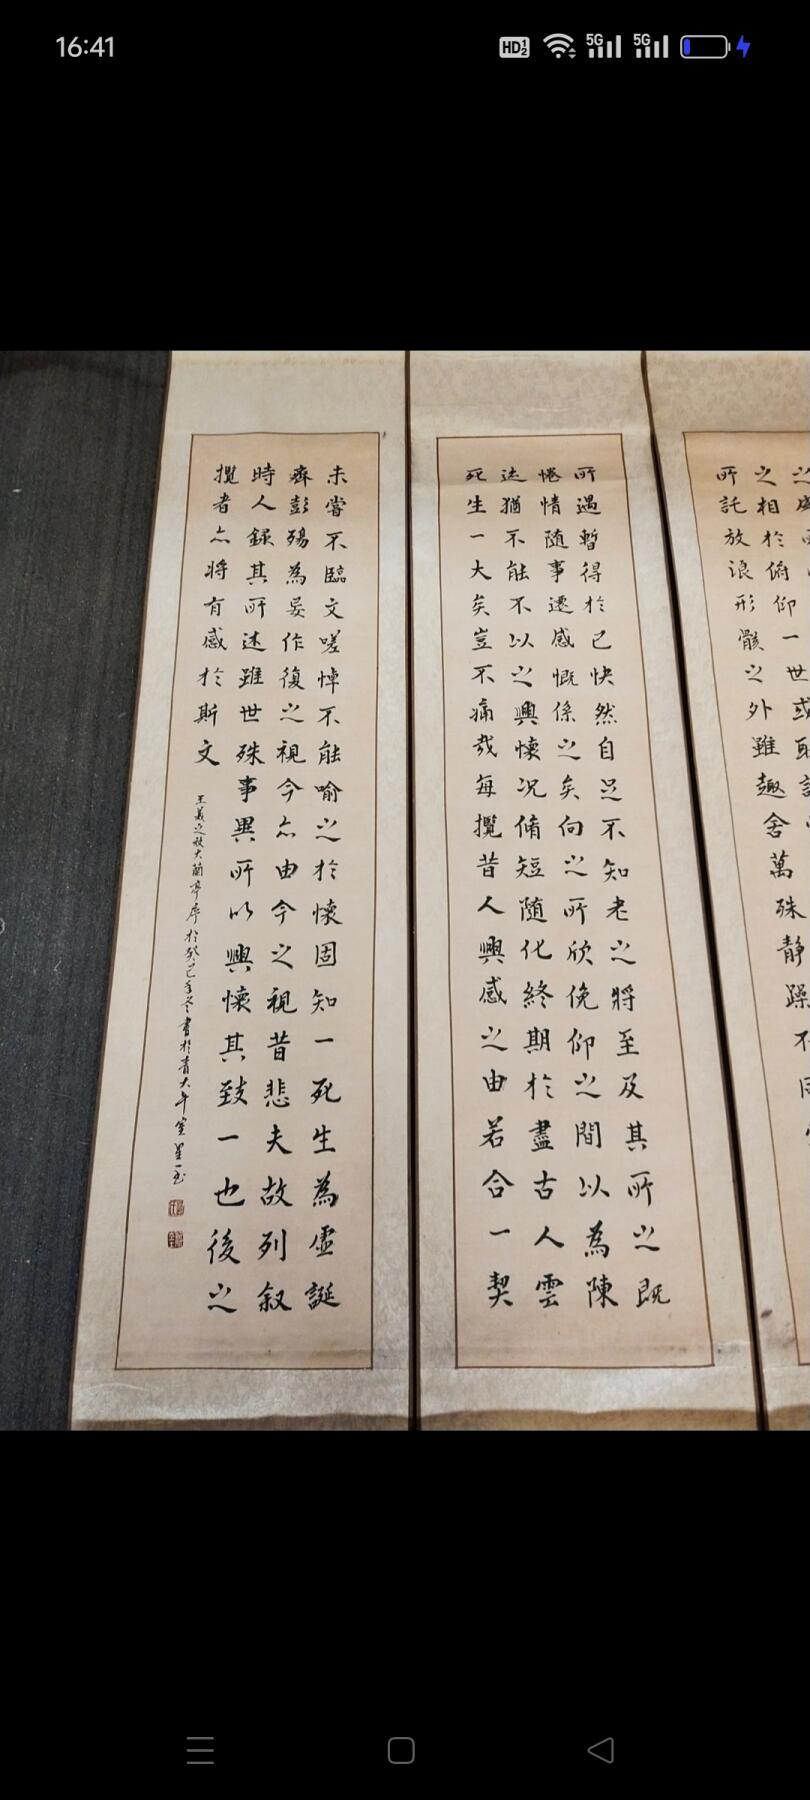 16:41
HD 1 2
5G
5G
之相於俯仰一世或取諸
所託放浪形骸之外雖趣舍萬殊靜躁不同當
所遇暫得於己快然自足不知老之將至及其所之既
惓情隨事遷感慨係之矣向之所欣俛仰之間以為陳
迹猶不能不以之興懷况脩短隨化終期於盡古人雲
死生一大矣豈不痛哉每攬昔人興感之由若合一契
未嘗不臨文嗟悼不能喻之於懷固知一死生為虛誕
齊彭殤為妄作後之視今亦由今之視昔悲夫故列叙
時人録其所述雖世殊事異所以興懷其致一也後之
攬者亦將有感於斯文